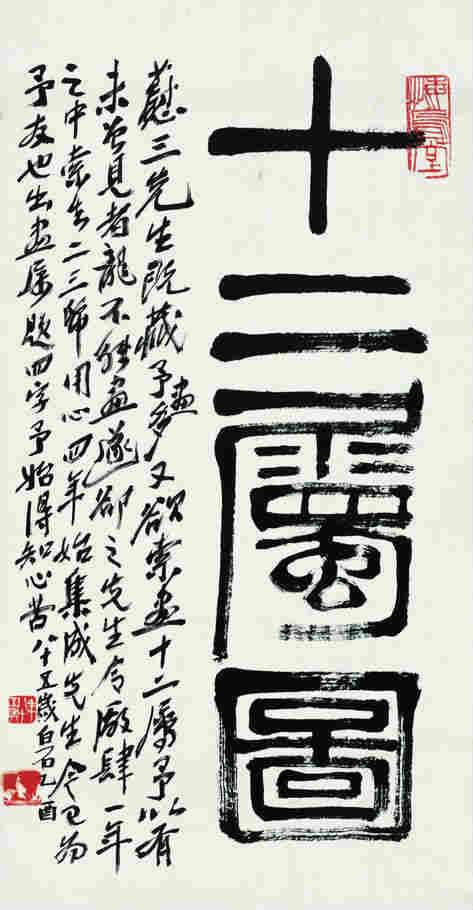 悔烏堂
十二屬圖
三先生既藏予畫多又欲索畫十二屬予以有
未曾見者龍不能畫遂卻之先生令廠肆一年
之中索去二三用心四年始集成先生今已為
予友也出畫屬題四字予始得知心苦八十五歲白石乙酉